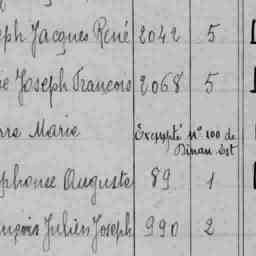 eph Jacques René 2042 5
e Joseph François 2068 5
rre Marie Exempté n° 100 de
Dinan Est
phonse Auguste 89 1
nçois Julien Joseph 990 2